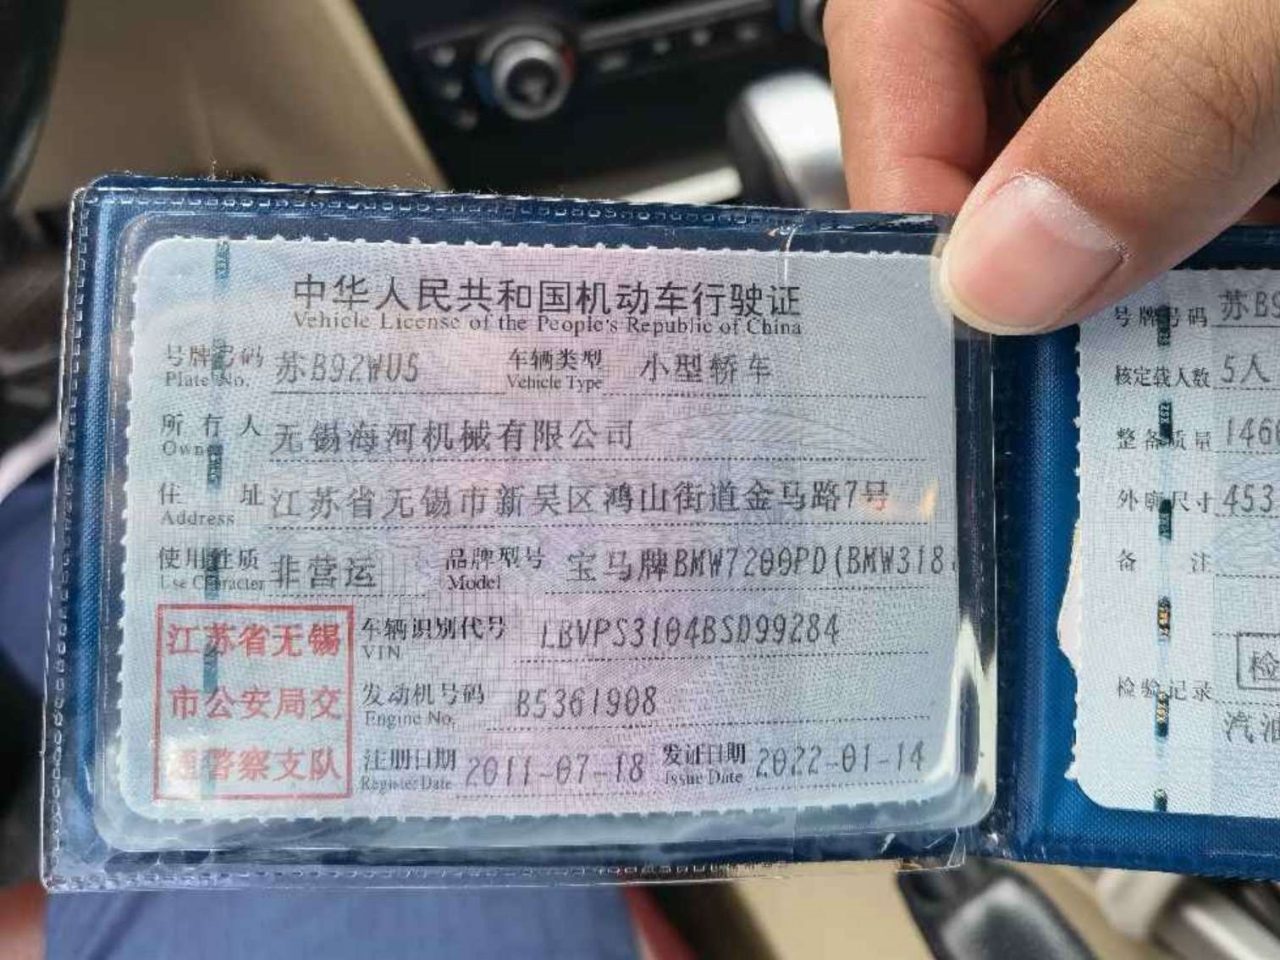 中华人民共和国机动车行驶证
Vehicle License of the People's Republic of China
号牌号码 苏B92WU5 车辆类型 小型轿车
Plate No. Vehicle Type
所有人 无锡海河机械有限公司
Owner
住址 江苏省无锡市新吴区鸿山街道金马路7号
Address
使用性质 非营运 品牌型号 宝马牌BMW7200PD(BMW318
Use Character Model
江苏省无锡
市公安局交
通警察支队
车辆识别代号 LBVPS3104BSD99284
VIN
发动机号码 B5361908
Engine No.
注册日期 2011-07-18 发证日期 2022-01-14
Register Date Issue Date
号牌号码 苏B9
核定载人数 5人
整备质量 146
外廓尺寸 453
备注
检
检验记录
汽油